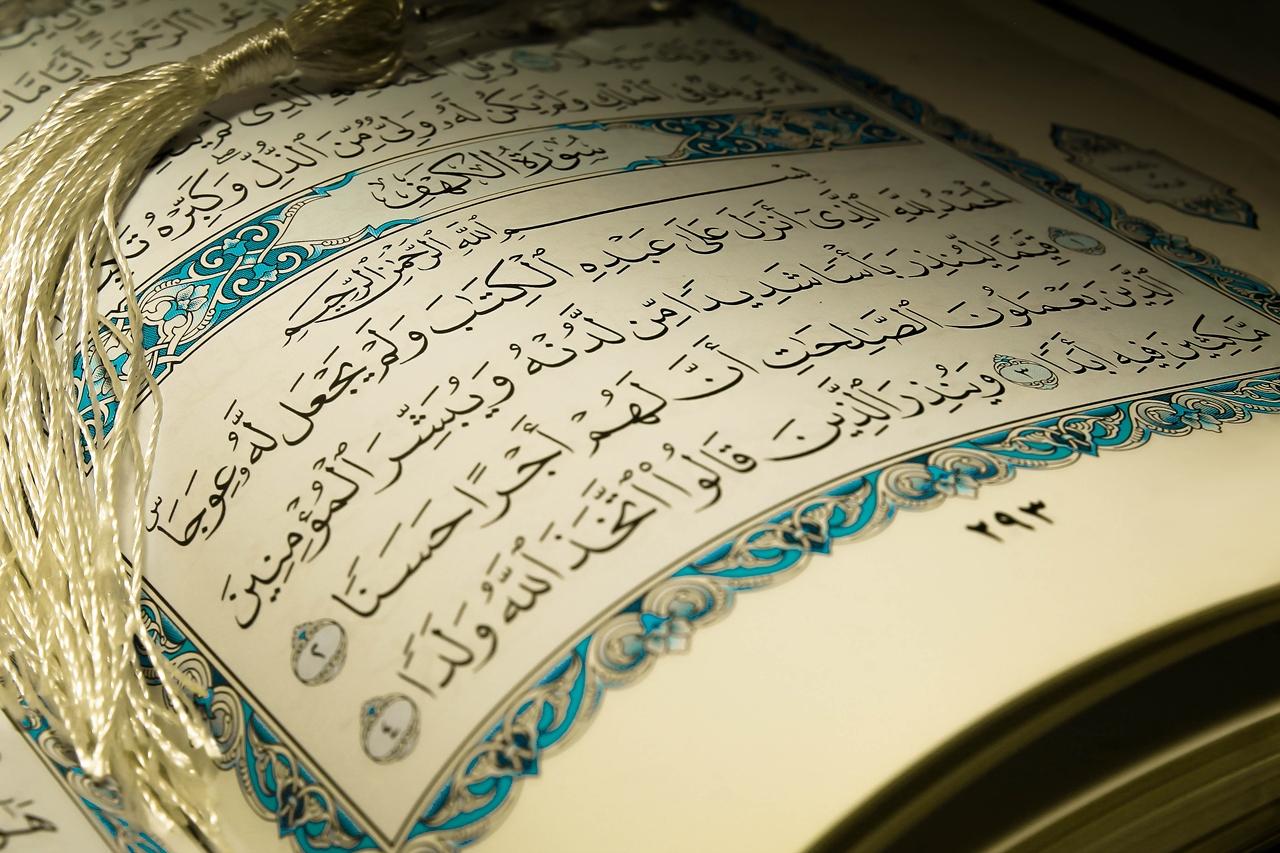 ٱلرَّحْمَٰنَ أَيًّا مَّا
ٱلَّذِى لَمْ
لَّهُۥ وَلِىٌّ مِّنَ ٱلذُّلِّ وَكَبِّرْهُ
سُورَةُ الكَهْفِ
بِسْمِ ٱللَّهِ ٱلرَّحْمَٰنِ ٱلرَّحِيمِ
ٱلْحَمْدُ لِلَّهِ ٱلَّذِىٓ أَنزَلَ عَلَىٰ عَبْدِهِ ٱلْكِتَٰبَ وَلَمْ يَجْعَل لَّهُۥ عِوَجَاۜ
١ قَيِّمًا لِّيُنذِرَ بَأْسًا شَدِيدًا مِّن لَّدُنْهُ وَيُبَشِّرَ ٱلْمُؤْمِنِينَ
ٱلَّذِينَ يَعْمَلُونَ ٱلصَّٰلِحَٰتِ أَنَّ لَهُمْ أَجْرًا حَسَنًا ٢
مَّٰكِثِينَ فِيهِ أَبَدًا ٣ وَيُنذِرَ ٱلَّذِينَ قَالُوا۟ ٱتَّخَذَ ٱللَّهُ وَلَدًا ٤
٢٩٣